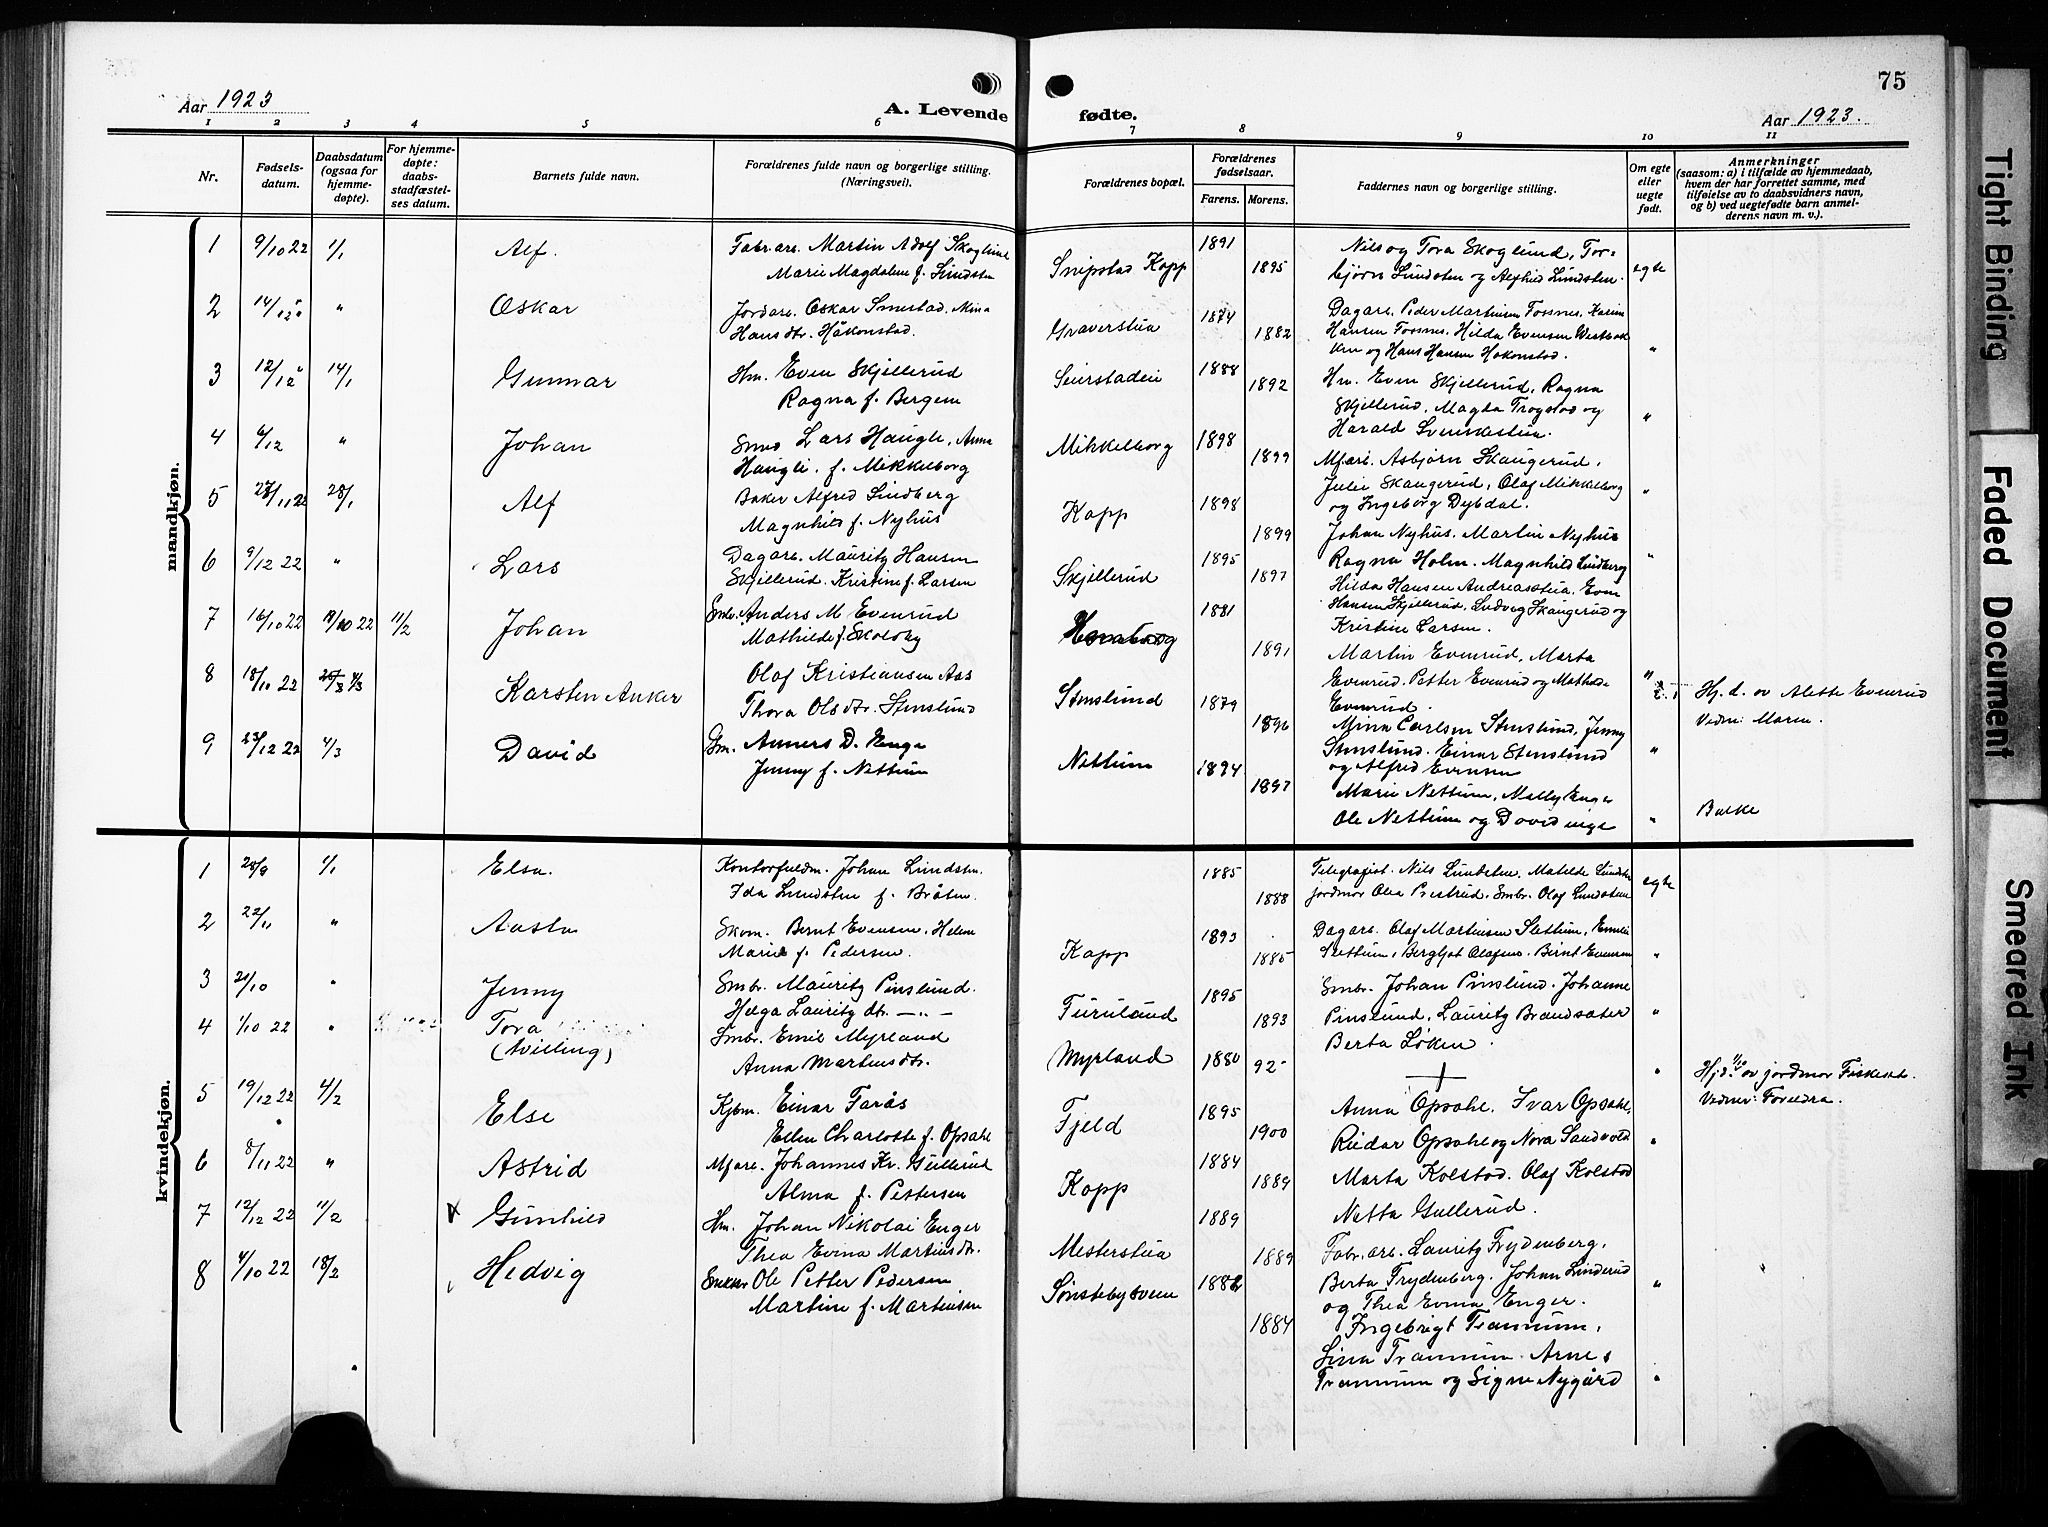 75
Aar 1923
A. Levende fødte.
Aar 1923.
1 2 3 4 5 6 7 8 9 10 11
Nr.
Fødsels-
datum.
Daabsdatum
(ogsaa for
hjemme-
døpte).
For hjemme-
døpte:
daabs-
stadfæstel-
ses datum.
Barnets fulde navn.
Forældrenes fulde navn og borgerlige stilling.
(Næringsvei).
Forældrenes bopæl.
Forældrenes
fødselsaar.
Farens. Morens.
Faddernes navn og borgerlige stilling.
Om egte
eller
uegte
født.
Anmerkninger
(saasom: a) i tilfælde av hjemmedaab,
hvem der har forrettet samme, med
tilføielse av to daabsvidners navn,
og b) ved uegtefødte barn anmel-
derens navn m. v.).
mandkjøn.
1 9/10 22 1/1 Alf. Fabr.arb. Martin Adolf Skoglund
Marie Magdalene f. Lundsten
Snipstad Kapp 1891 1895
Nils og Tora Skoglund, Tor-
bjørn Lundsten og Alfhild Lundsten. egte
2 14/12 " " Oskar Jordarb. Oskar Smestad. Mina
Hansdtr. Håkonstad.
Graverstua 1874 1882
Dagarb. Peder Martinsen Fossnes. Karen
Hansen Fossnes. Hilda Evensen Westbak
ken og Hans Hansen Hakonstad. "
3 12/12 " 14/1 Gunnar Hm. Even Skjellerud
Ragna f. Bergem
Seierstadeie 1888 1892
Hm. Even Skjellerud. Ragna
Skjellerud. Magda Trogstad og
Harald Svenkestuen. "
4 6/12 " Johan Smed Lars Haugli. Anna
Haugli. f. Mikkelborg
Mikkelborg 1898 1899
Mf.arb. Asbjørn Skaugerud.
Julie Skaugerud, Olaf Mikkelborg
og Ingeborg Dybdal. "
5 27/11 22 28/1 Alf Baker Alfred Lindberg
Magnhild f. Nyhus
Kapp 1898 1899
Johan Nyhus. Martin Nyhus
Ragna Holm. Magnhild Lindberg "
6 9/12 22 " Lars Dagarb. Mauritz Hansen
Skjellerud. Kristine f. Larsen
Skjellerud 1895 1897
Hilda Hansen Andreasstua. Even
Hansen Skjellerud. Ludvig Skaugerud og
Kristine Larsen.
7 16/10 22 18/10 22 11/2 Johan Smbr. Anders M Evenrud
Mathilde f. Skolby
1881 1891
Martin Evenrud, Marta
Evenrud. Petter Evenrud og Mathilde
Evenrud. "
Hj. d. av Alette Evenrud
Vedn: Moren.
8 18/10 22 25/3 4/3 Karsten Anker Olaf Kristiansen Aas
Thora Olsdtr. Stenslund
Stenslund 1879 1896
Mina Carlsen Stenslund, Jenny
Stenslund. Einar Stenslund
og Alfred Evensen "
9 23/12 22 4/3 David Gm. Anners D. Enge
Jenny f. Nettum
Nettum 1894 1897
Marie Nettum, Molly Enger
Ole Nettum og David Enge " Balke
kvindekjøn.
1 28/9 1/1 Elsa. Kontorfuldm. Johan Lundsten.
Ida Lundsten f. Bråten.
1885 1888
Telegrafist. Nils Lundsten. Matelde Lundsten
jordmor Olea Prestrud. Smbr. Olaf Lundstene egte
2 22/11 " Aasta Skom. Bernt Evensen. Helene
Marie f. Pedersen.
Kapp 1893 1885
Dagarb. Olaf Martinsen Slettum, Emilie
Slettum, Bergljot Olafsen. Bernt Evensen "
3 21/10 " Jenny Smbr. Mauritz Pinslund.
Helga Lauritzdtr. — " —
Furulund 1895 1893
Smbr. Johan Pinslund. Johanne
Pinslund, Lauritz Brandsæter
Berta Løken. "
4 1/10 22 " Tora
(tvilling)
Smbr. Emil Myrland
Anna Martinsdtr.
Myrland 1880 92
"
Hj. d. av jordmor Fiskeset.
Vedner: Foreldra.
5 19/12 22 4/2 Else Kjbm. Einar Farås
Ellen Charlotte f. Opsahl
Fjeld 1895 1900
Anna Opsahl. Ivar Opsahl.
Reidar Opsahl og Nora Sandvold "
6 8/11 22 " Astrid Mfarb. Johannes Kr. Gullerud
Alma f. Pettersen
Kapp 1884 1889
Marta Kolstad. Olaf Kolstad
Netta Gullerud.
7 12/12 22 11/2 Gunhild Hm. Johan Nikolai Enger
Thea Evina Martinsdtr.
Mesterstua 1889 1889
Fabr.arb. Lauritz Frydenberg.
Berta Frydenberg. Johan Linderud
og Thea Evina Enger. "
8 4/10 22 18/2 Hedvig Ole Petter Pedersen
Martine f. Martinsen
Sønstebysveen 1882 1884
Ingebrigt Tranmum.
Lina Tranmum. Arne
Tranmum og Signe Nygård "
Tight Binding
Faded Document
Smeared Ink